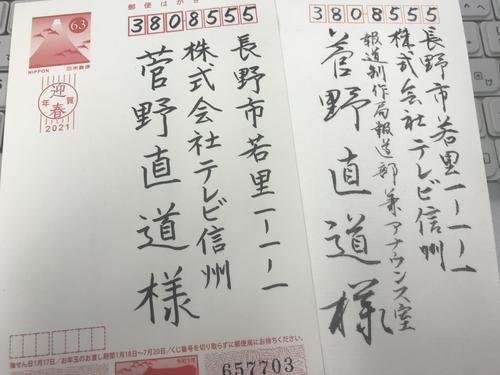 郵便はがき
3808555
長野市若里一ー一ー一
株式会社テレビ信州
菅野直道様
63
NIPPON
日本郵便
迎春
年賀
2021
抽せん日1月17日/お年玉のお渡し期間1月18日〜7月20日/くじ番号を切り取らずに郵便局にお持ちください。
令和3年
657703
3808555
長野市若里一ー一ー一
株式会社テレビ信州
報道制作局報道部兼アナウンス室
菅野直道様